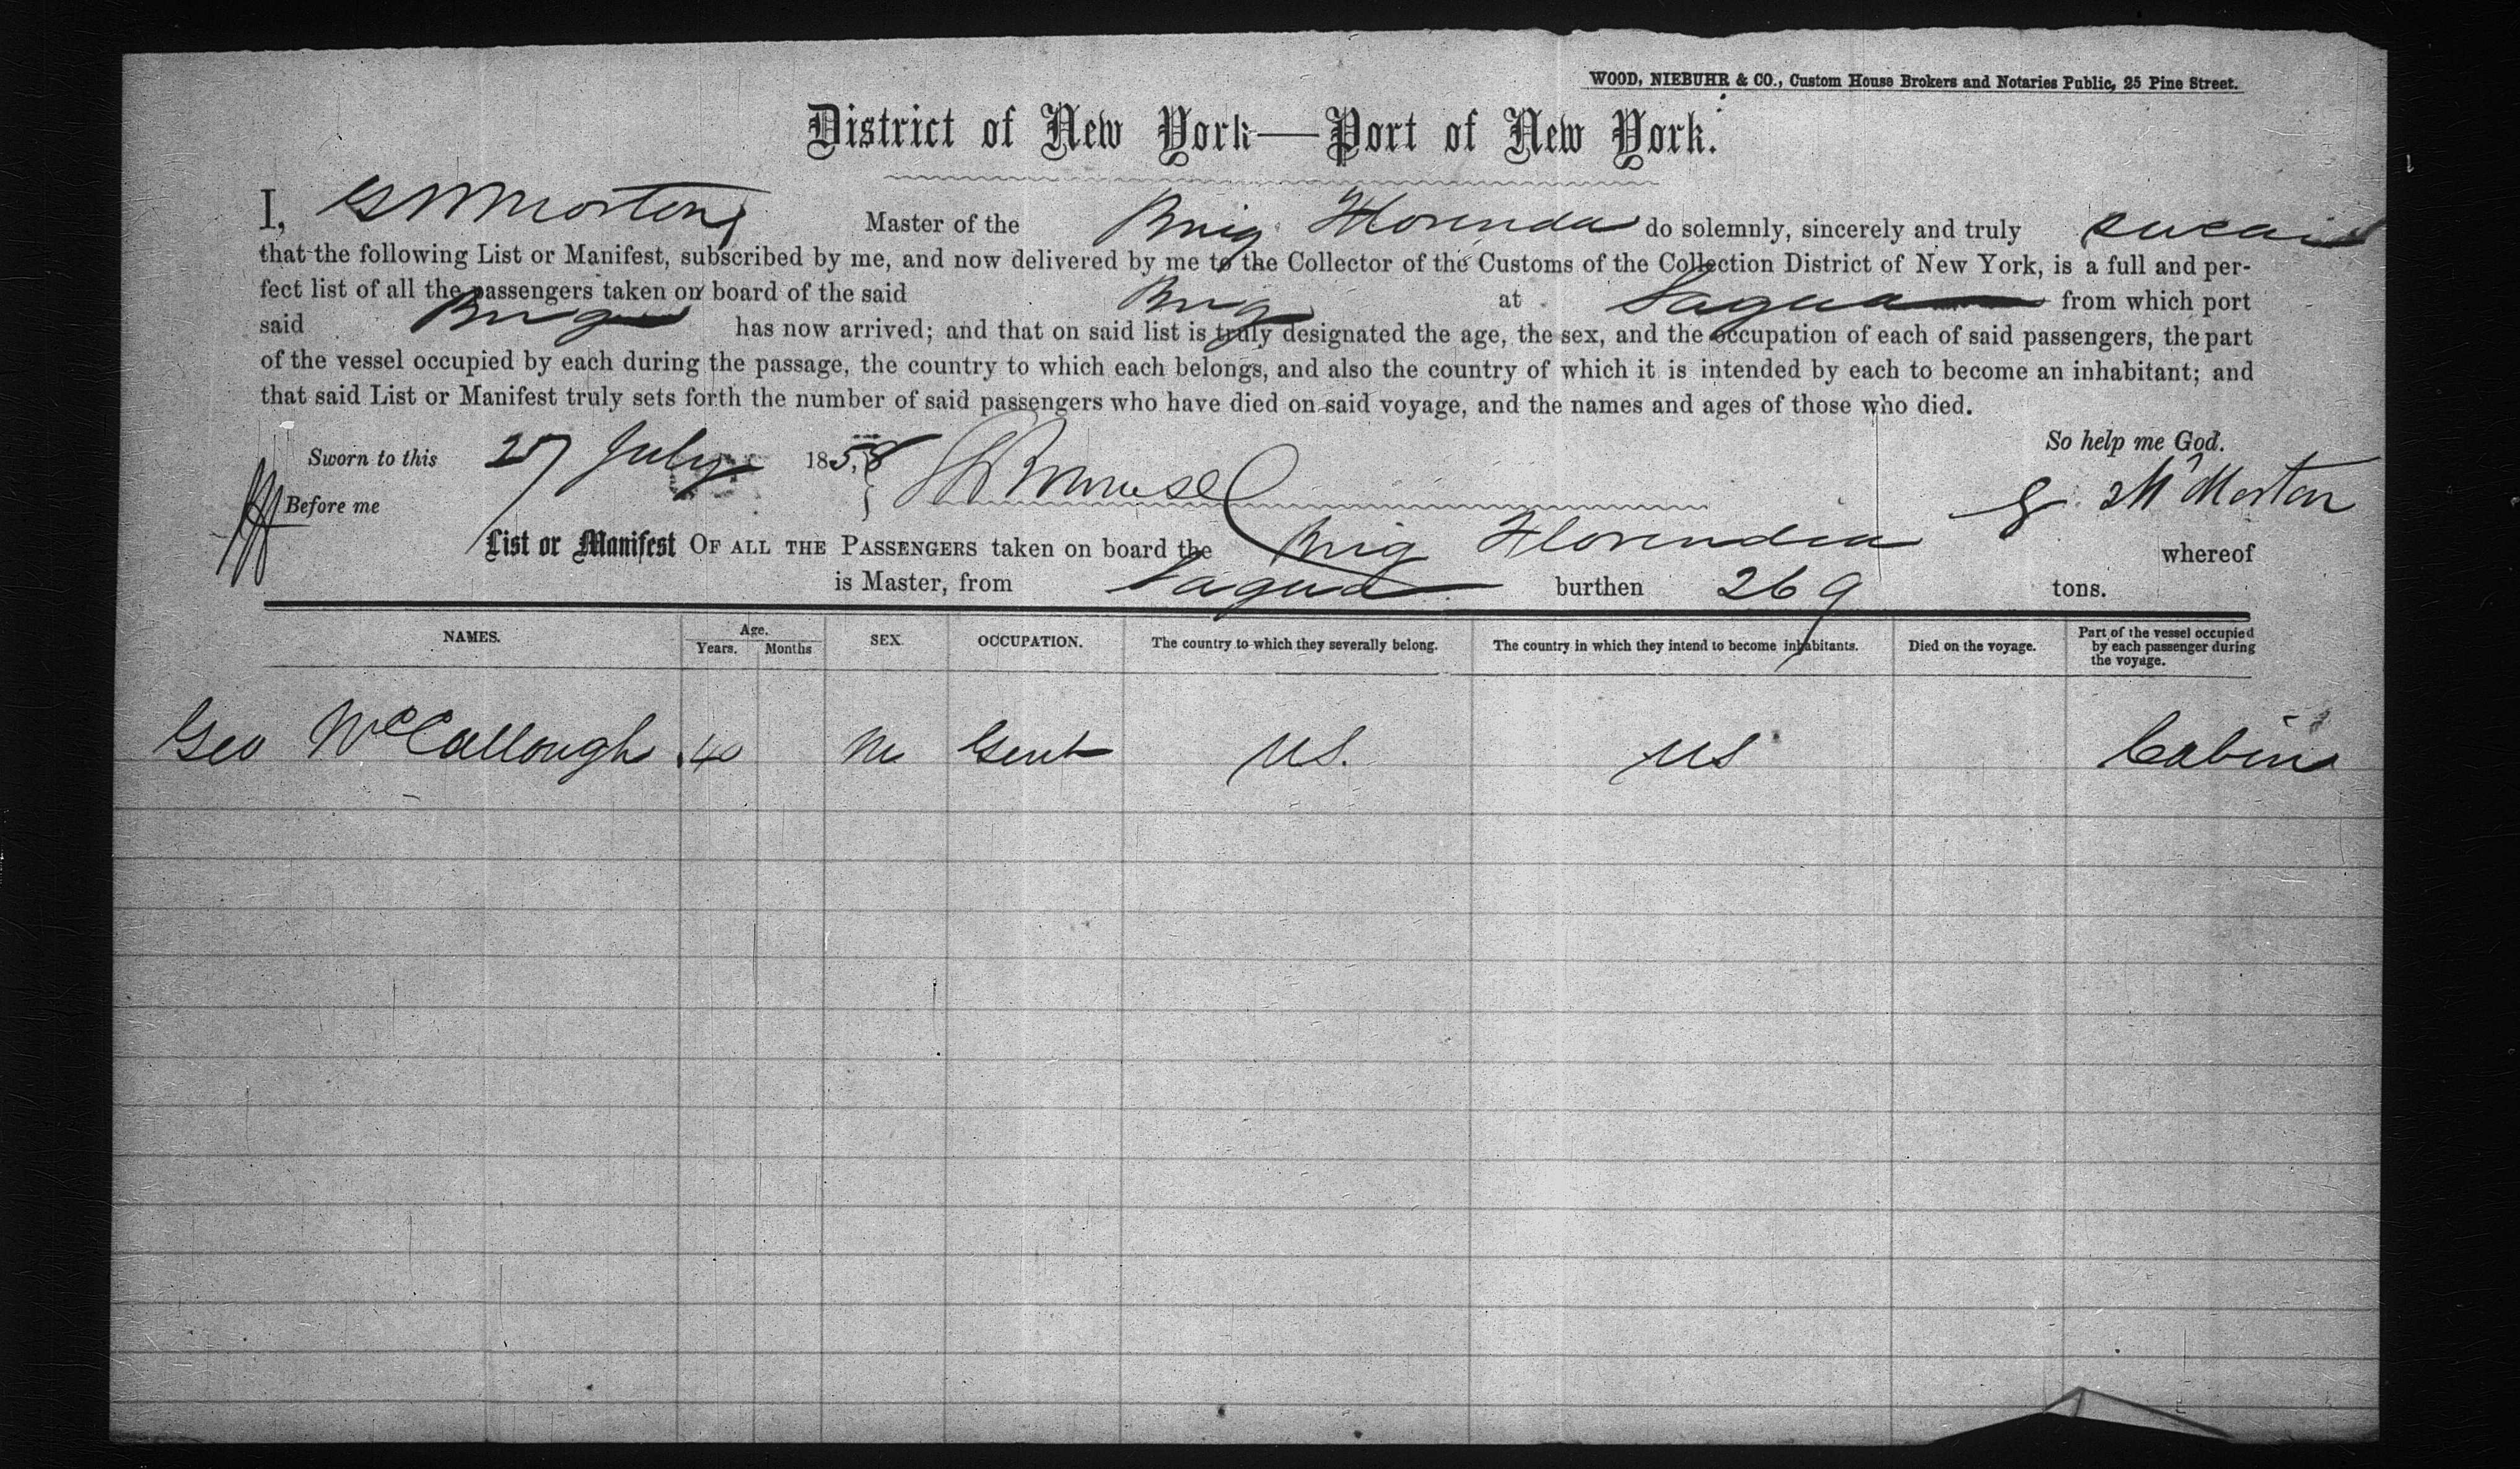 WOOD, NIEBUHR & CO., Custom House Brokers and Notaries Public, 25 Pine Street.
District of New York—Port of New York.
I, G M Morton Master of the Brig Florenda do solemnly, sincerely and truly swear
that the following List or Manifest, subscribed by me, and now delivered by me to the Collector of the Customs of the Collection District of New York, is a full and per-
fect list of all the passengers taken on board of the said Brig at Sagua from which port
said Brig has now arrived; and that on said list is truly designated the age, the sex, and the occupation of each of said passengers, the part
of the vessel occupied by each during the passage, the country to which each belongs, and also the country of which it is intended by each to become an inhabitant; and
that said List or Manifest truly sets forth the number of said passengers who have died on said voyage, and the names and ages of those who died.
So help me God.
Sworn to this 27 July 1858
Before me
G M Morton
List or Manifest OF ALL THE PASSENGERS taken on board the Brig Florendia whereof
is Master, from Sagua burthen 269 tons.
NAMES. Age. Years. Months SEX. OCCUPATION. The country to which they severally belong. The country in which they intend to become inhabitants. Died on the voyage. Part of the vessel occupied by each passenger during the voyage.
Geo McCallough 40 M Gent US. US Cabin